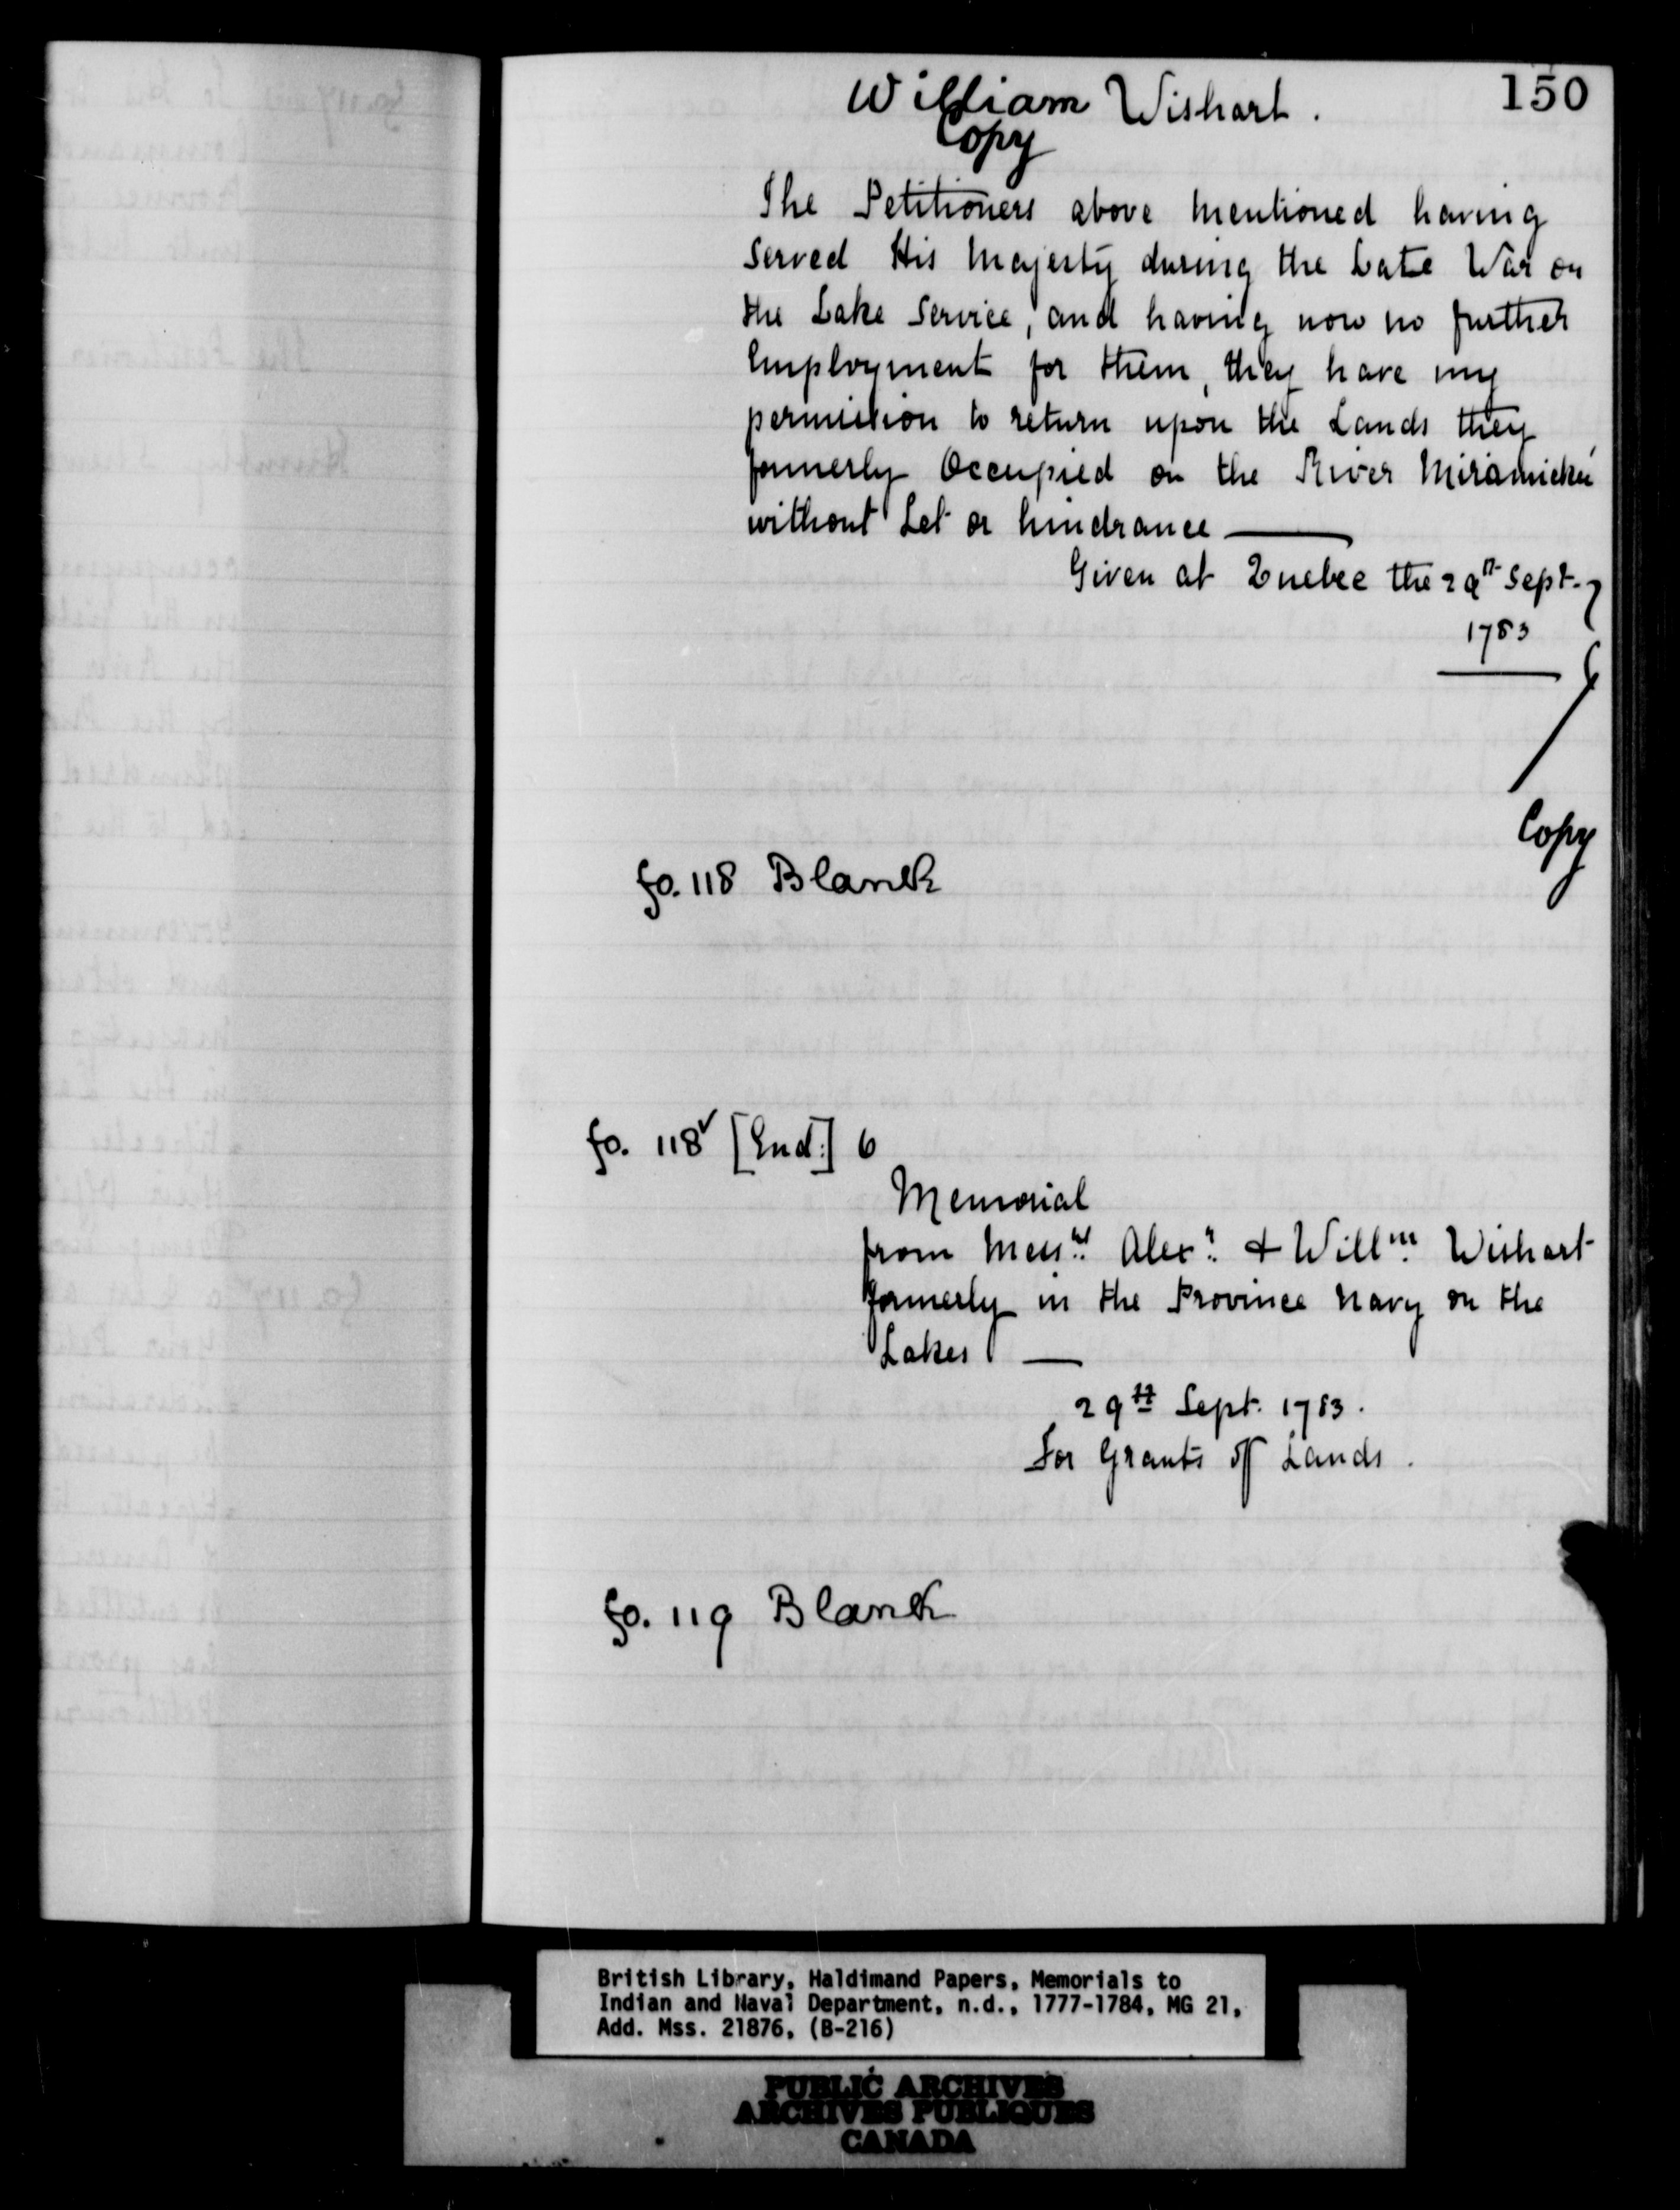 150
William Wishart.
Copy
The Petitioners above mentioned having
Served His Majesty during the Late War on
the Lake Service, and having now no further
Employment for them, they have my
permission to return upon the Lands they
formerly Occupied on the River
without Let or hindrance
Given at Quebec the 29th Sept.
1783
Copy
fo. 118 Blank
fo. 118v [End:] 6
Memorial
from Messrs Alexr. & Willm. Wishart
formerly in the Province Navy on the
Lakes —
29th Sept. 1783.
For Grants of Lands.
fo. 119 Blank
British Library, Haldimand Papers, Memorials to
Indian and Naval Department, n.d., 1777-1784, MG 21,
Add. Mss. 21876, (B-216)
PUBLIC ARCHIVES
ARCHIVES PUBLIQUES
CANADA